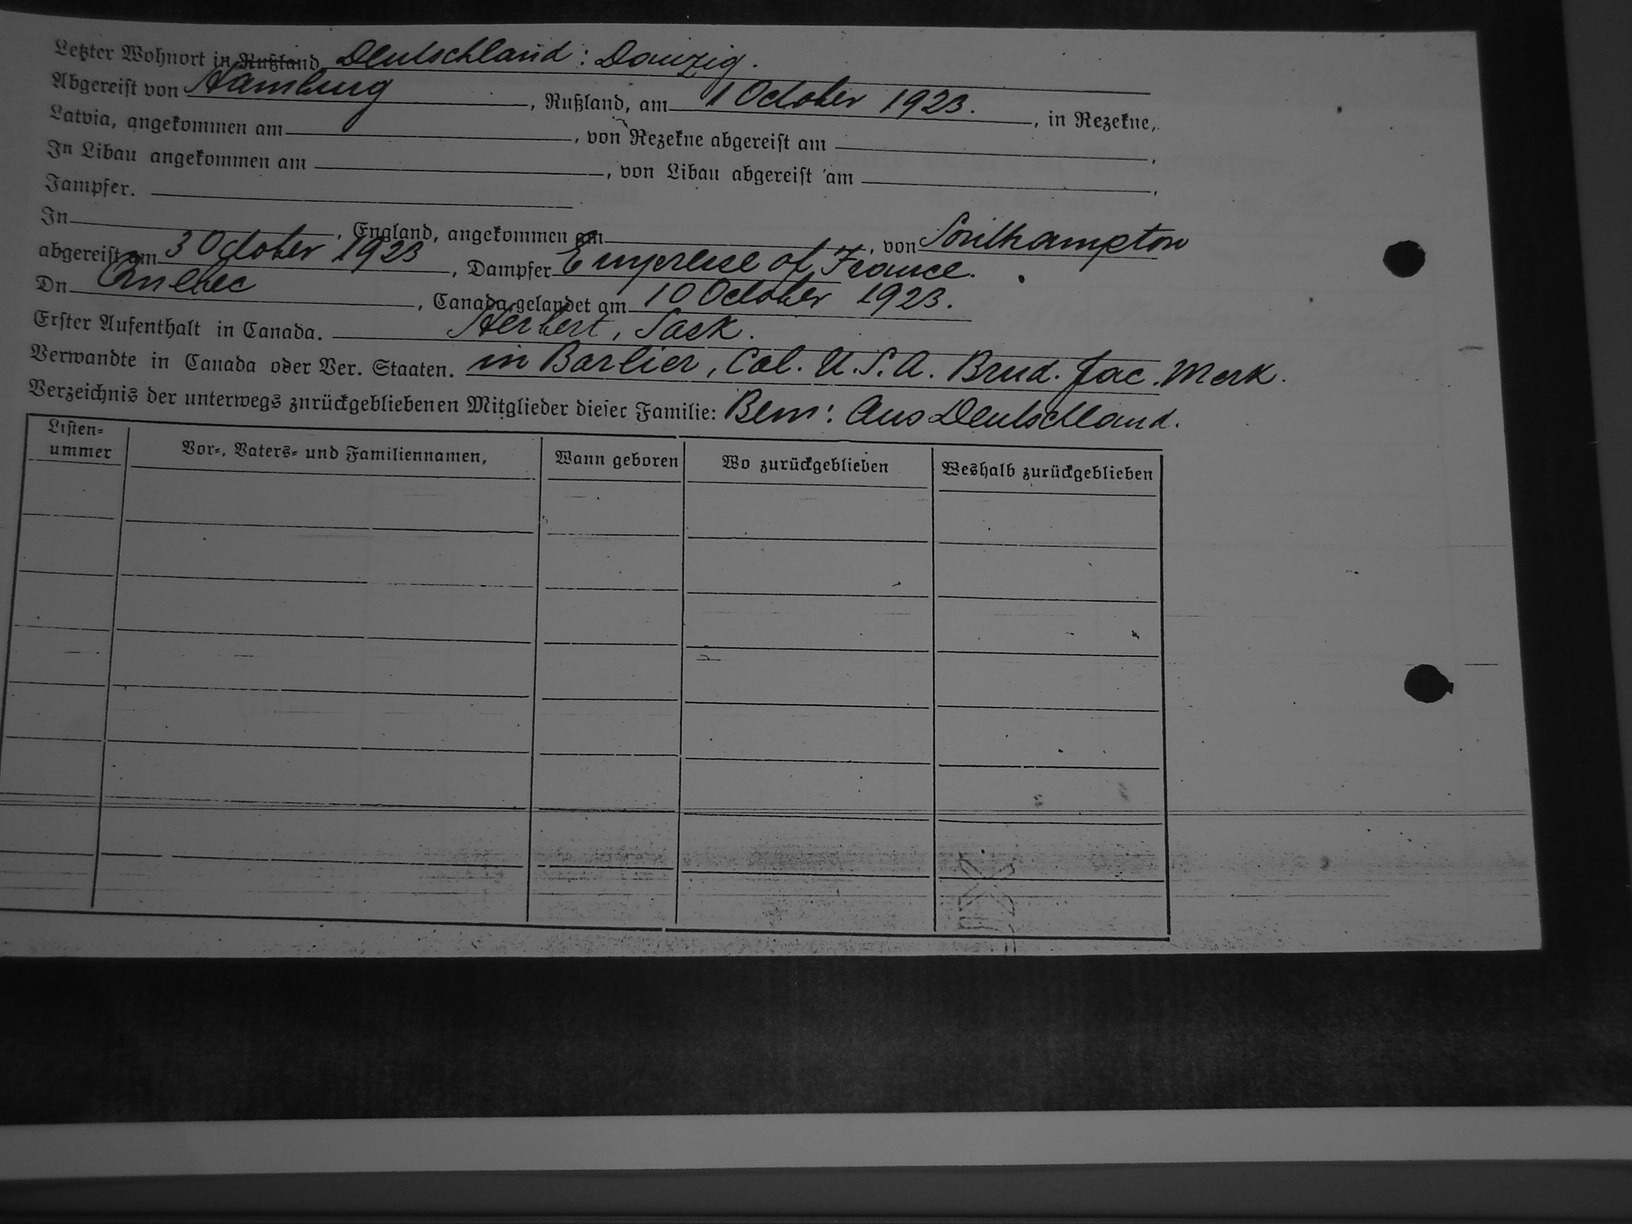 Letzter Wohnort in Rußland Deutschland: Danzig.
Abgereist von Hamburg, Rußland, am 1 October 1923., in Rezekne,
Latvia, angekommen am, von Rezekne abgereist am,
In Libau angekommen am, von Libau abgereist am,
Jampfer.
In, England, angekommen am, von Southampton
abgereist am 3 October 1923, Dampfer Emprese of France.
Dn Quebec, Canada gelandet am 10 October 1923.
Erster Aufenthalt in Canada. Herbert, Sask.
Verwandte in Canada oder Ver. Staaten. in Barlier, Cal. U.S.A. Brud. Jac. Merk.
Verzeichnis der unterwegs znrückgebliebenen Mitglieder dieser Familie: Bem: Aus Deutschland.
Listen=
ummer
Vor=, Vaters= und Familiennamen,
Wann geboren
Wo zurückgeblieben
Weshalb zurückgeblieben